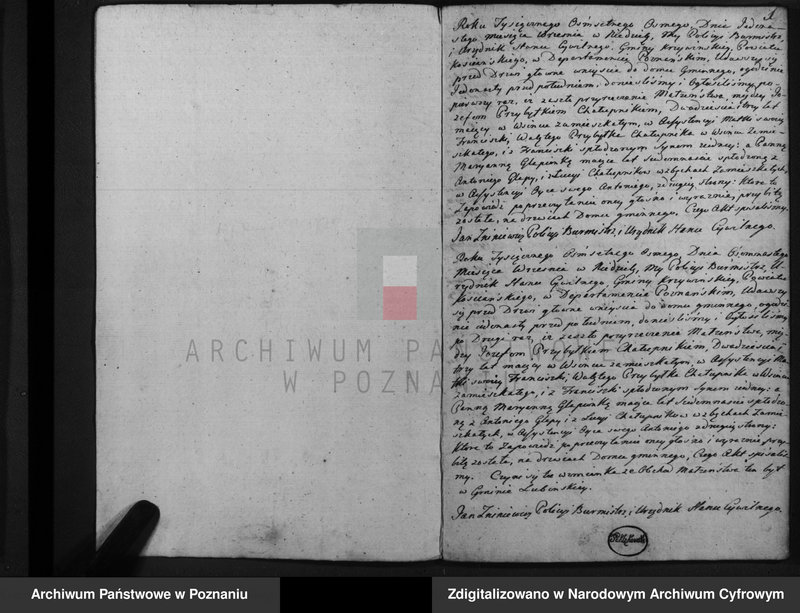 1
Roku Tysiącznego Osmsetnego Osmego, Dnia Jedena-
stego Miesiąca Wrzesnia w Niedzielę, My Policyi Burmistrz,
i Urzędnik Stanu Cywilnego, Gminy Krzywinskiey, Powiatu
Kosciańskiego, w Departamencie Poznańskim, Udawszy się
przed Drzwi głowne wniyscia do domu Gminnego, o godzinie
Jedenasty przed południem, donieslismy i Ogłosilismy po
pierwszy raz, iż zaszło przyrzeczenie Małżenstwa, między Jo-
zefem Przybytkiem Chałupnikiem, Dwadziescia i trzy lat
maiący w Wsince zamieszkałym, w Assystencyi Matki swoiey
Franciszki, Walętego Przybytka Chałupnika w Wsince Zamie-
szkałego, i z Franciszki spłodzonym Synem z iedney: a Panną
Maryanną Głapianką maiące lat Siedemnascie spłodzoną z
Antoniego Głapy, i z Łucyi Chałupnikow w Zbychach Zamieszkałych,
w Assystencyi Oyca swego Antoniego, z drugiey strony: Ktore to
Zapowiedź po przeczytaniu oney głosno i wyraznie, przybitą
została, na drzwiach Domu gminnego, Czego Akt spisalismy.
Jan Policyi Burmistrz, i Urzędnik Stanu Cywilnego.
Roku Tysiącznego Osmsetnego Osmego Dnia Osmnastego
Miesiąca Wrzesnia w Niedzielę, My Policyi Burmistrz, U-
rzędnik Stanu Cywilnego, Gminy Krzywinskiey, Powiatu
Kosciańskiego, w Departamencie Poznańskim, Udawszy
się przed Drzwi głowne wniyscia do domu gminnego, o godzi-
nie iedenasty przed południem, donieslismy i Ogłosilismy
po Drugi raz, iż zaszło przyrzeczenie Małżenstwa, mię-
dzy Jozefem Przybytkiem Chałupnikiem, Dwadziescia i
trzy lat maiący w Wsince zamieszkałym, w Assystencyi Ma-
tki swoiey Franciszki, Walętego Przybytka Chałupnika w Wsince
zamieszkałego, i z Franciszki spłodzonym Synem z iedney: a
Panną Maryanną Głapianką maiące lat Siedemnascie spłodzo-
ną z Antoniego Głapy i z Łucyi Chałupnikow w Zbychach Zamie-
szkałych, w Assystencyi Oyca swego Antoniego z drugiey strony:
Ktore to Zapowiedź po przeczytaniu oney głosno i wyraznie przy-
bitą została, na drzwiach Domu gminnego, Czego Akt spisalis-
my. Czyni się tu wzmianka że Obchod Małżenstwa ten był
w Gminie Lubinskiey.
Jan Policyi Burmistrz i Urzędnik Stanu Cywilnego.
ARCHIWUM PA
W POZNA
Archiwum Państwowe w Poznaniu
Zdigitalizowano w Narodowym Archiwum Cyfrowym